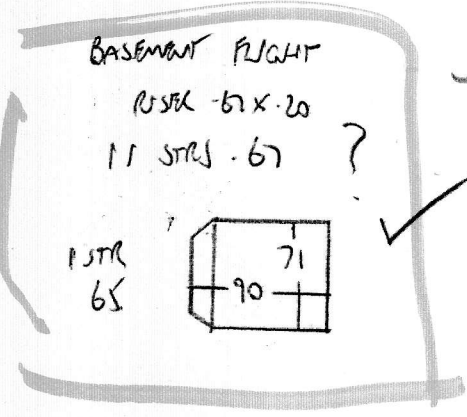 BASEMENT FLIGHT
RISER .67 x .20
11 STRS .67 ?
1 STR
65
71
90